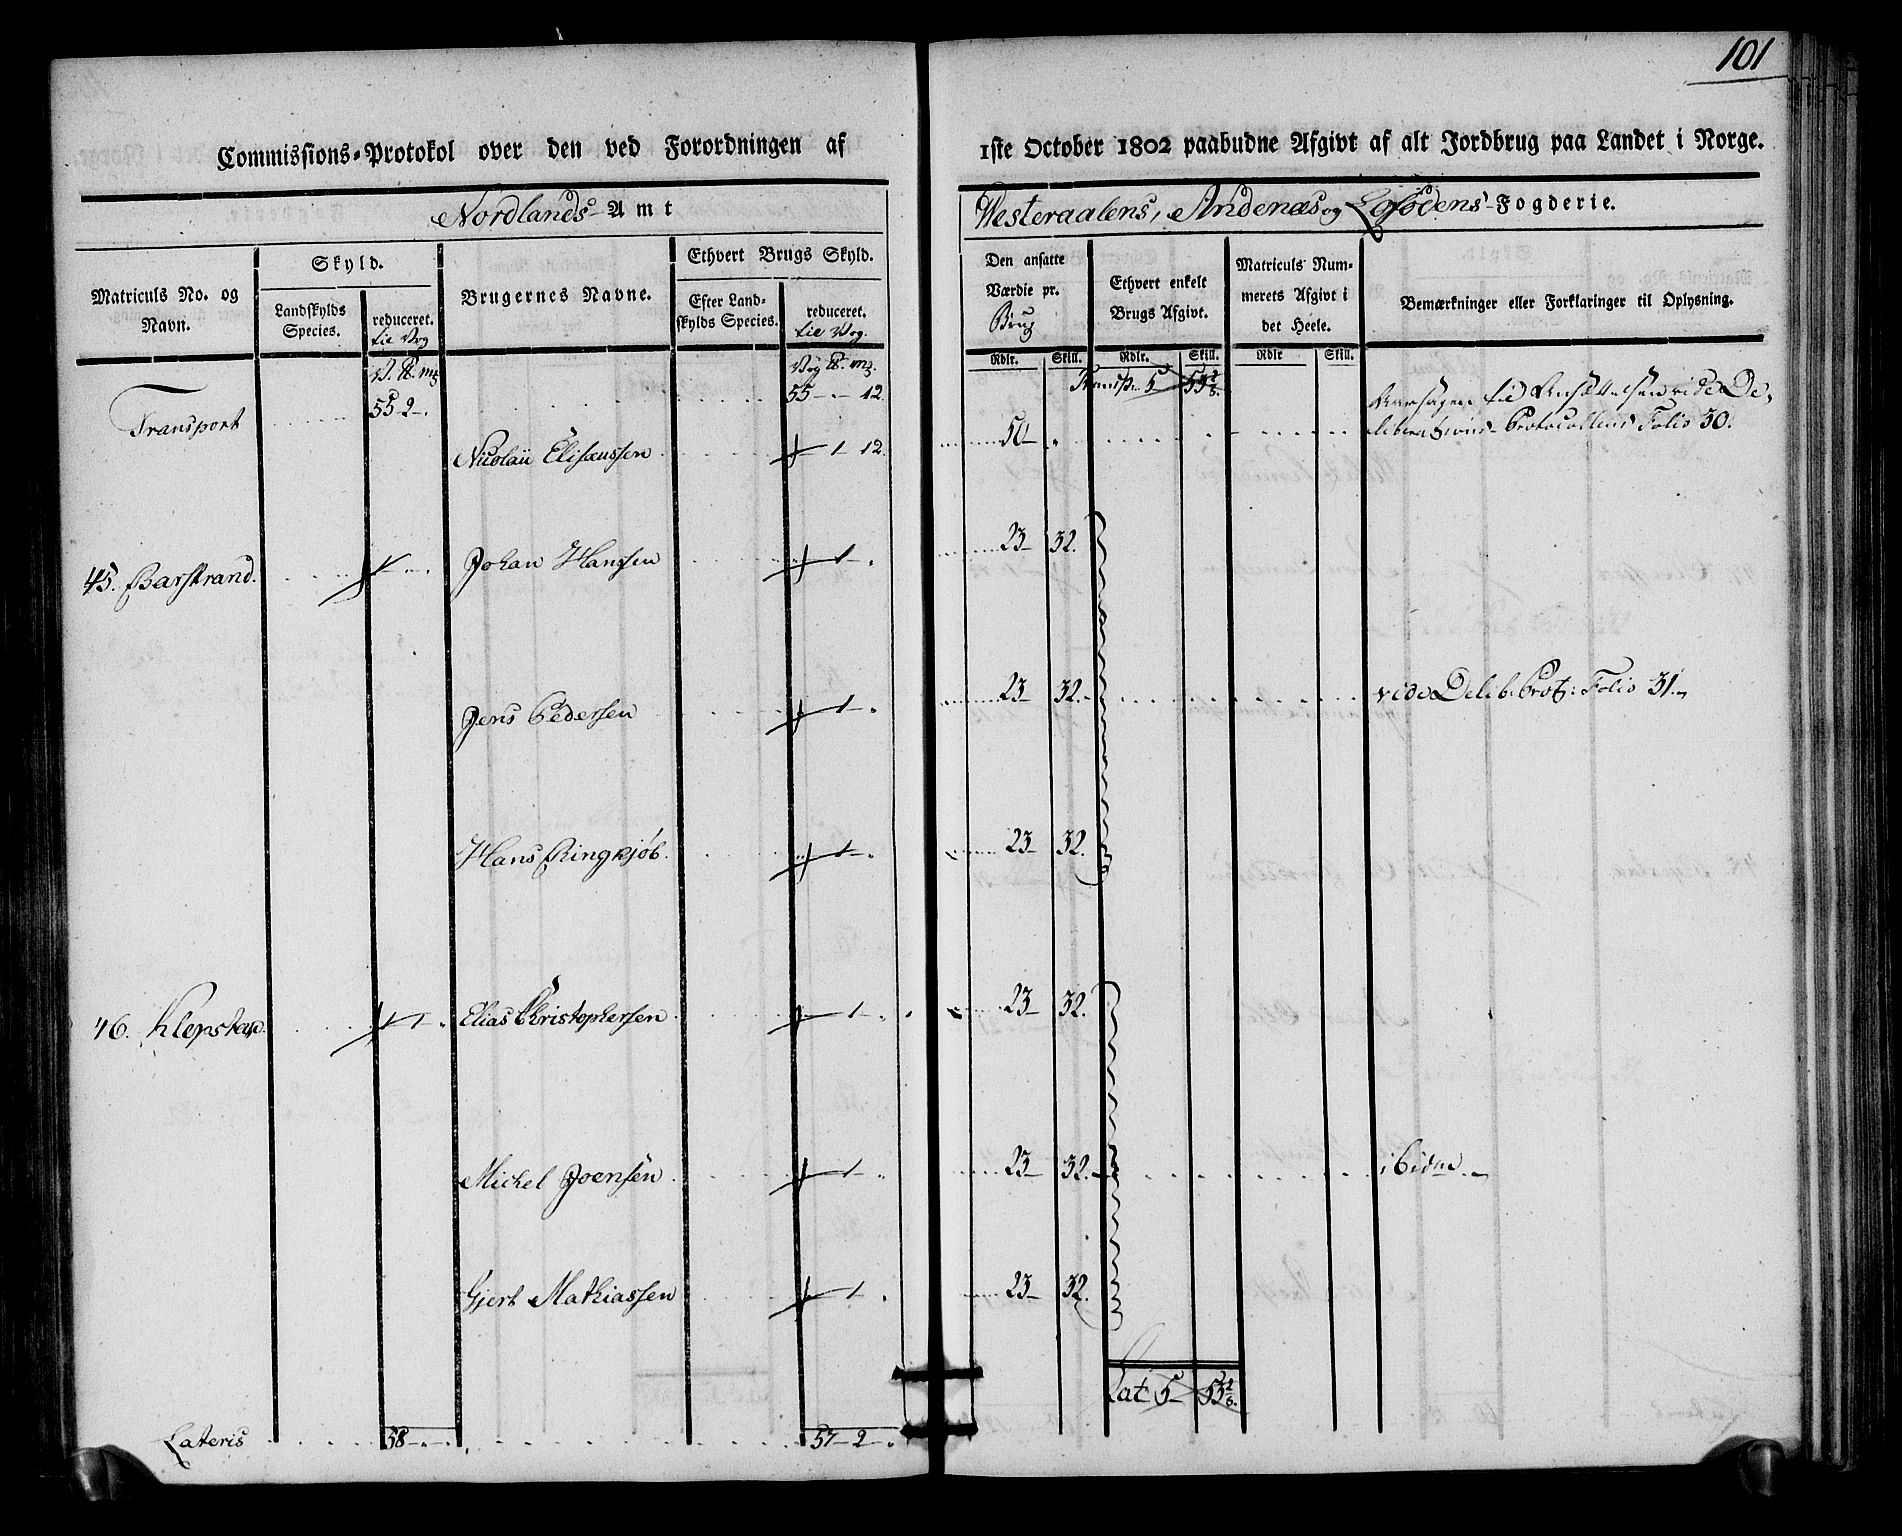 101
Commissions-Protokol over den ved Forordningen af 1ste October 1802 paabudne Afgivt af alt Jordbrug paa Landet i Norge.
Nordlands-Amt
Westeraalens, Andenæs og Lofodens-Fogderie.
Matriculs No. og Navn.
Skyld.
Landskylds Species.
reduceret. til Vog
Brugernes Navne.
Ethvert Brugs Skyld.
Efter Landskylds Species.
reduceret. til Vog.
Den ansatte Værdie pr. Brug
Ethvert enkelt Brugs Afgivt.
Matriculs Nummerets Afgivt i det Heele.
Bemærkninger eller Forklaringer til Oplysning.
Rdlr. Skill. Rdlr. Skill. Rdlr Skill.
Transport 55-2-. 55-.-12. Transp. 5
Nicolai Elisæussen 1-12. 50-.
til Ansættelsen vide De-
liberations-Protocollens Folio 30.
45. Barstrand. Johan Hanssen 1-. 23-32.
Jens Pedersen 1-. 23-32. vide Delib. Prot: Folio 31.
Hans Ringkjöb. 1-. 23-32.
46. Klepstad. 1-. Elias Christophersen 1-. 23-32.
Michel Joensen 1-. 23-32. ibidm.
Gjert Mathiassen 1-. 23-32.
Lat 5
Lateris 58-.-. 57-2-.